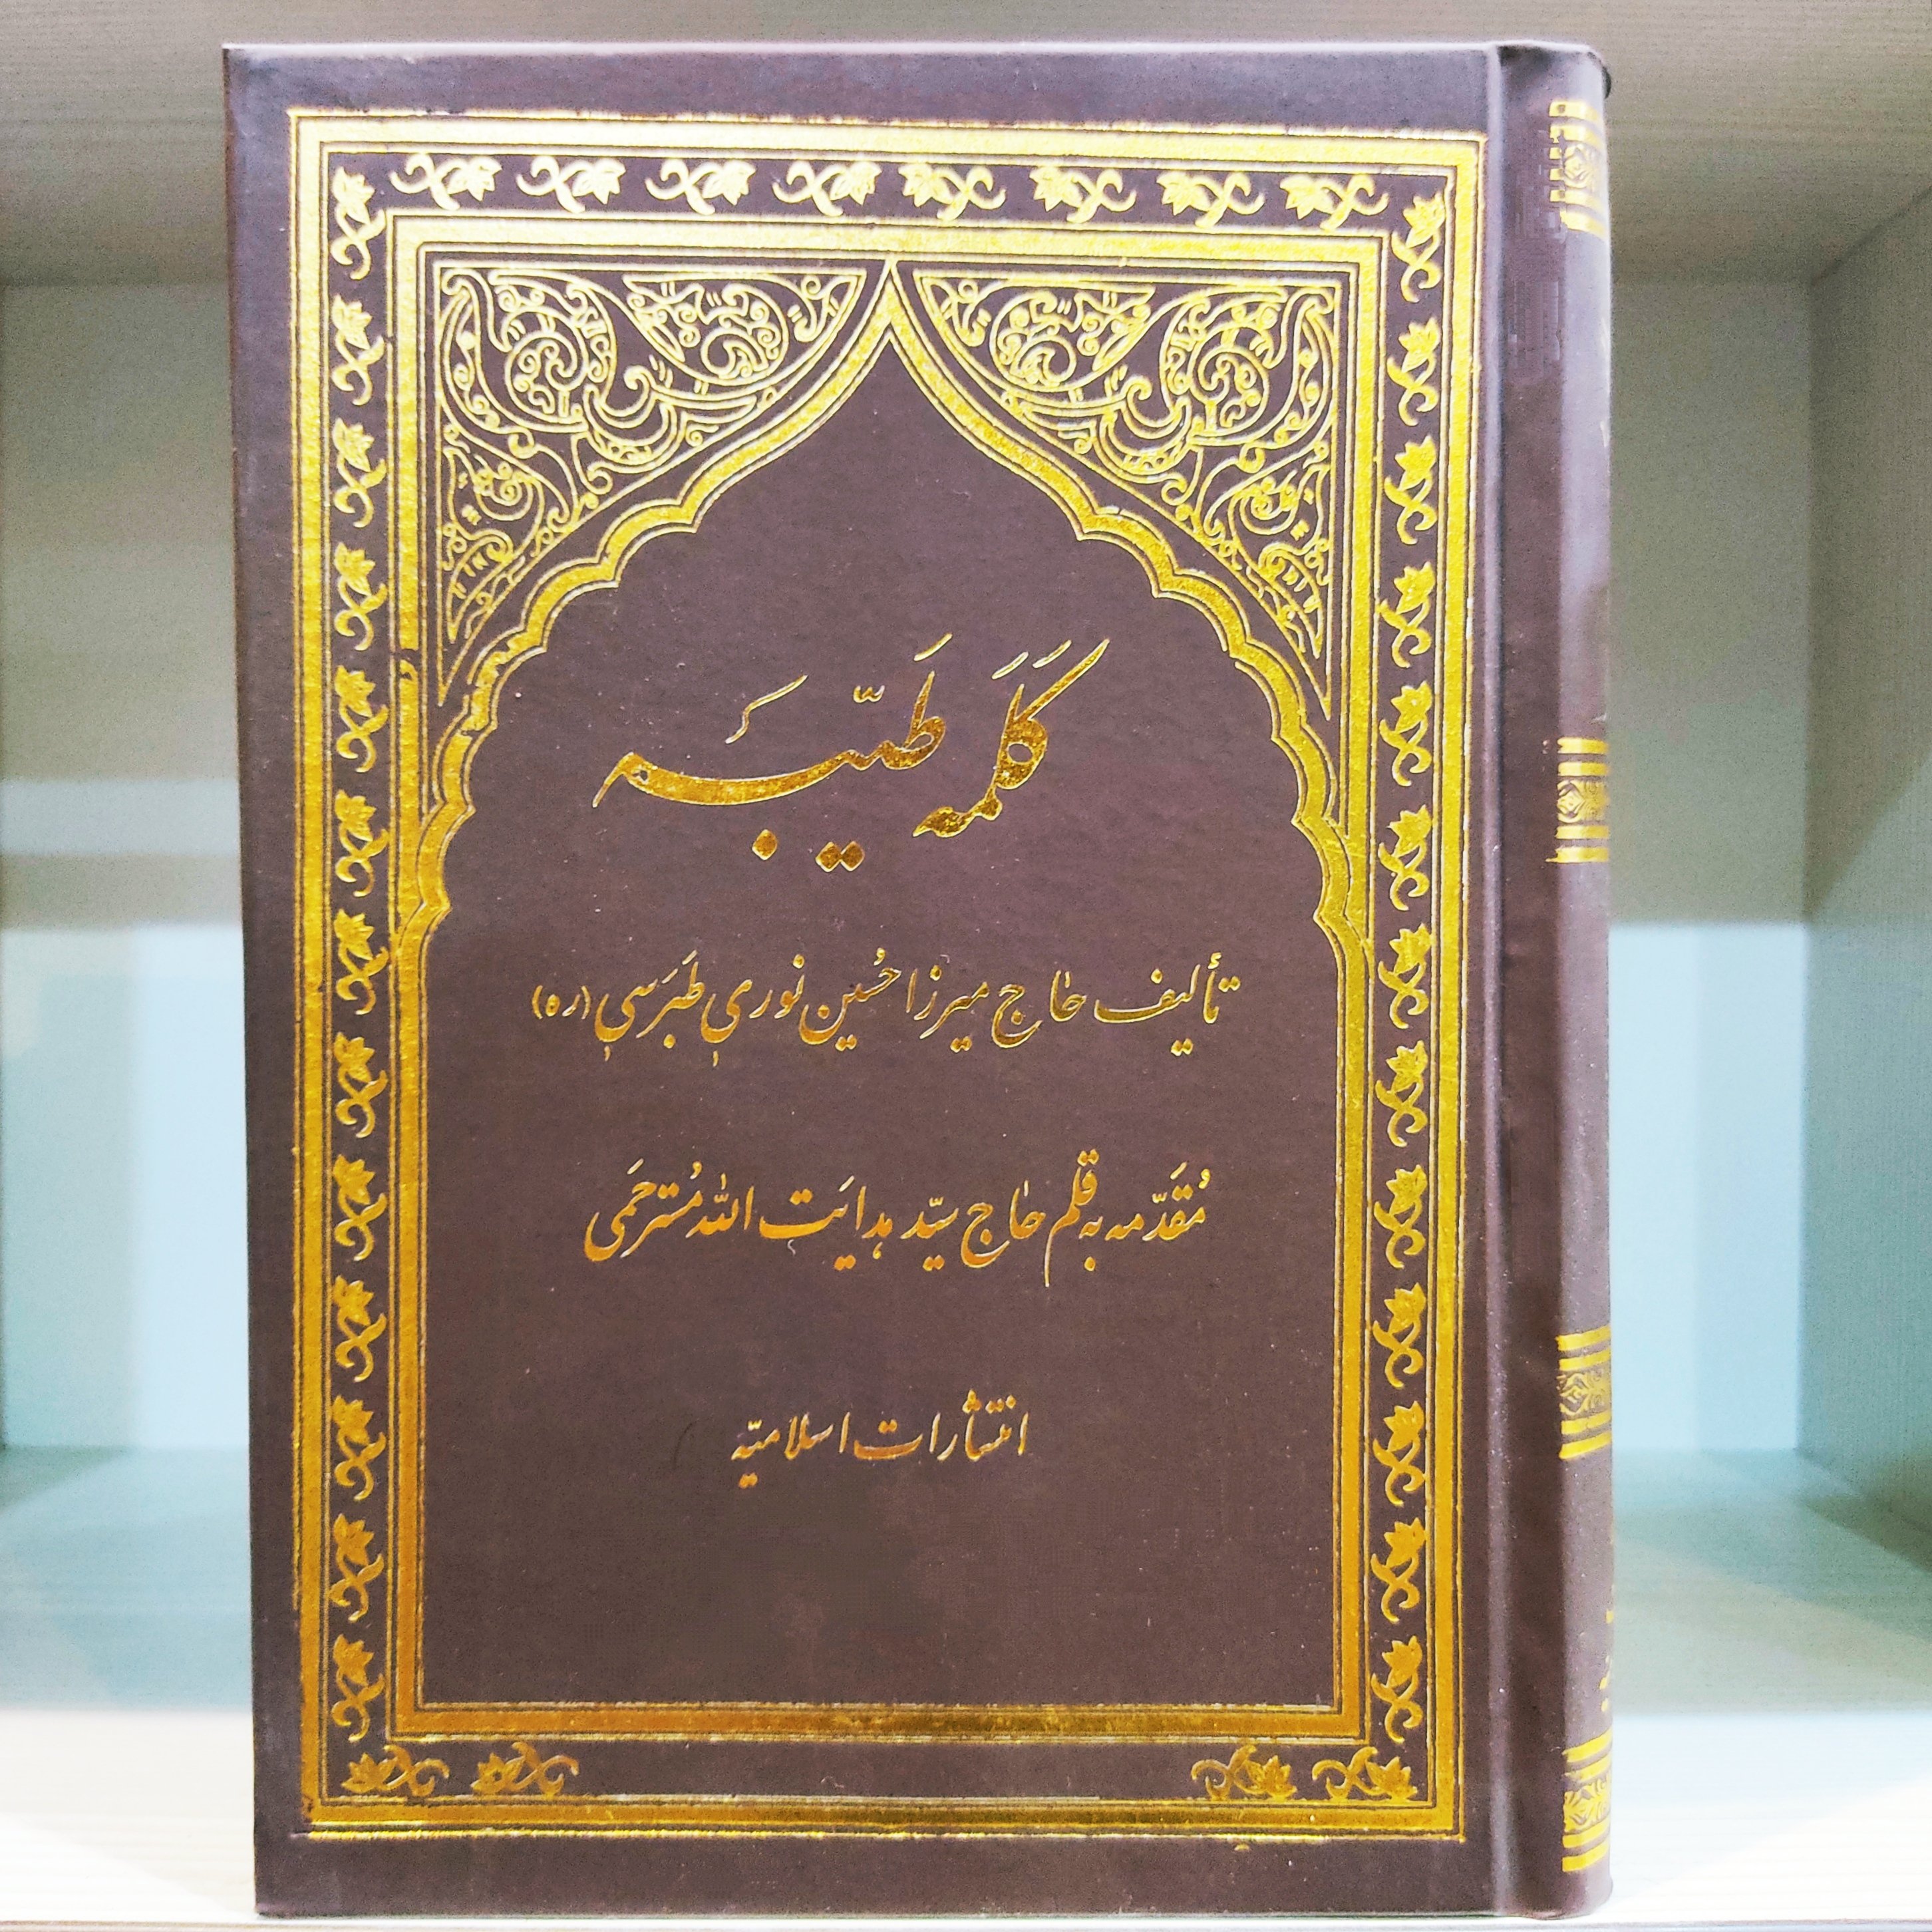 کَلَمَه طَیّبَه
تألیف حاج میرزا حُسین نوری طَبَرَسی (ره)
مُقَدّمه به قلم حاج سیّد هدایَت الله مُسترحَمی
انتشارات اسلامیّه